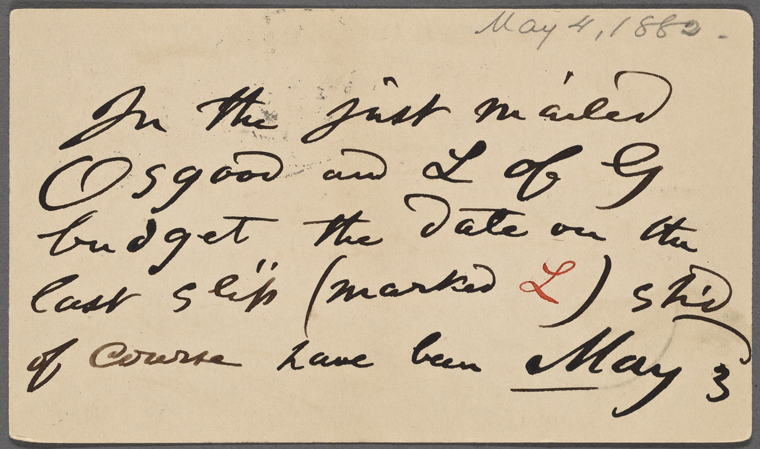 May 4, 1882.
In the just mailed
Osgood and L of G
budget the date on the
last slip (marked L) sh'd
of course have been May 3